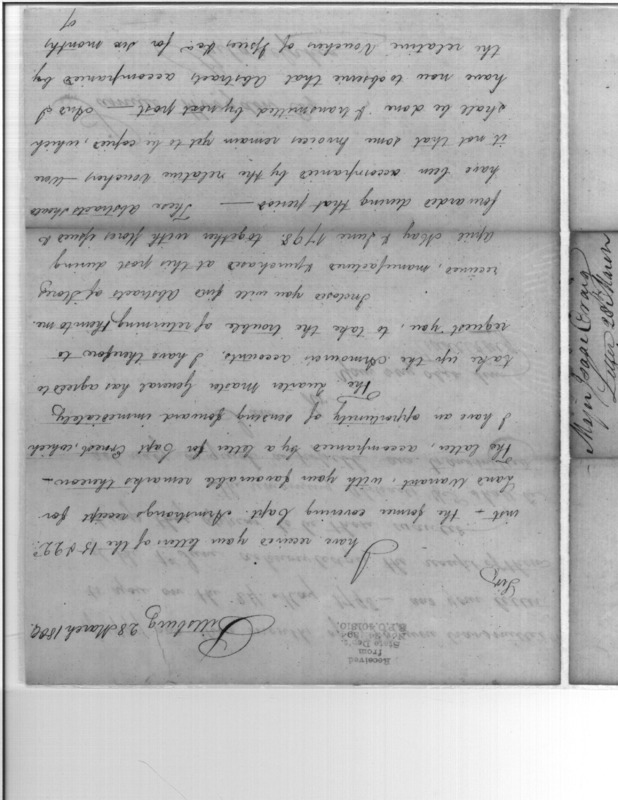 Pittsburg 28 March 1800
Received
from
State Dep't
Sir,
I have received your letters of the 15 & 22d
inst — the former covering Capt. Armstrongs receipt for
Land Warrant, with your favourable remarks thereon —
The latter, accompanied by a letter for Capt Ernest, which
I have an opportunity of sending forward immediately.
The Quarter Master General has agreed to
take up the Armourers accounts, I have therefore to
request you, to take the trouble of returning them to me.
Inclosed you will find Abstracts of Stores
received, manufactured & purchased at this post during
April May & June 1798. together with stores issued &
forwarded during that period — These Abstracts should
have been accompanied by the relative Vouchers — were
it not that some Invoices remain yet to be copied, which
shall be done & transmitted by next post — And I
have now to observe that Abstracts accompanied by
the relative Vouchers of Issues &c. for six months
of
Major Isaac Craig
Letter 28 March